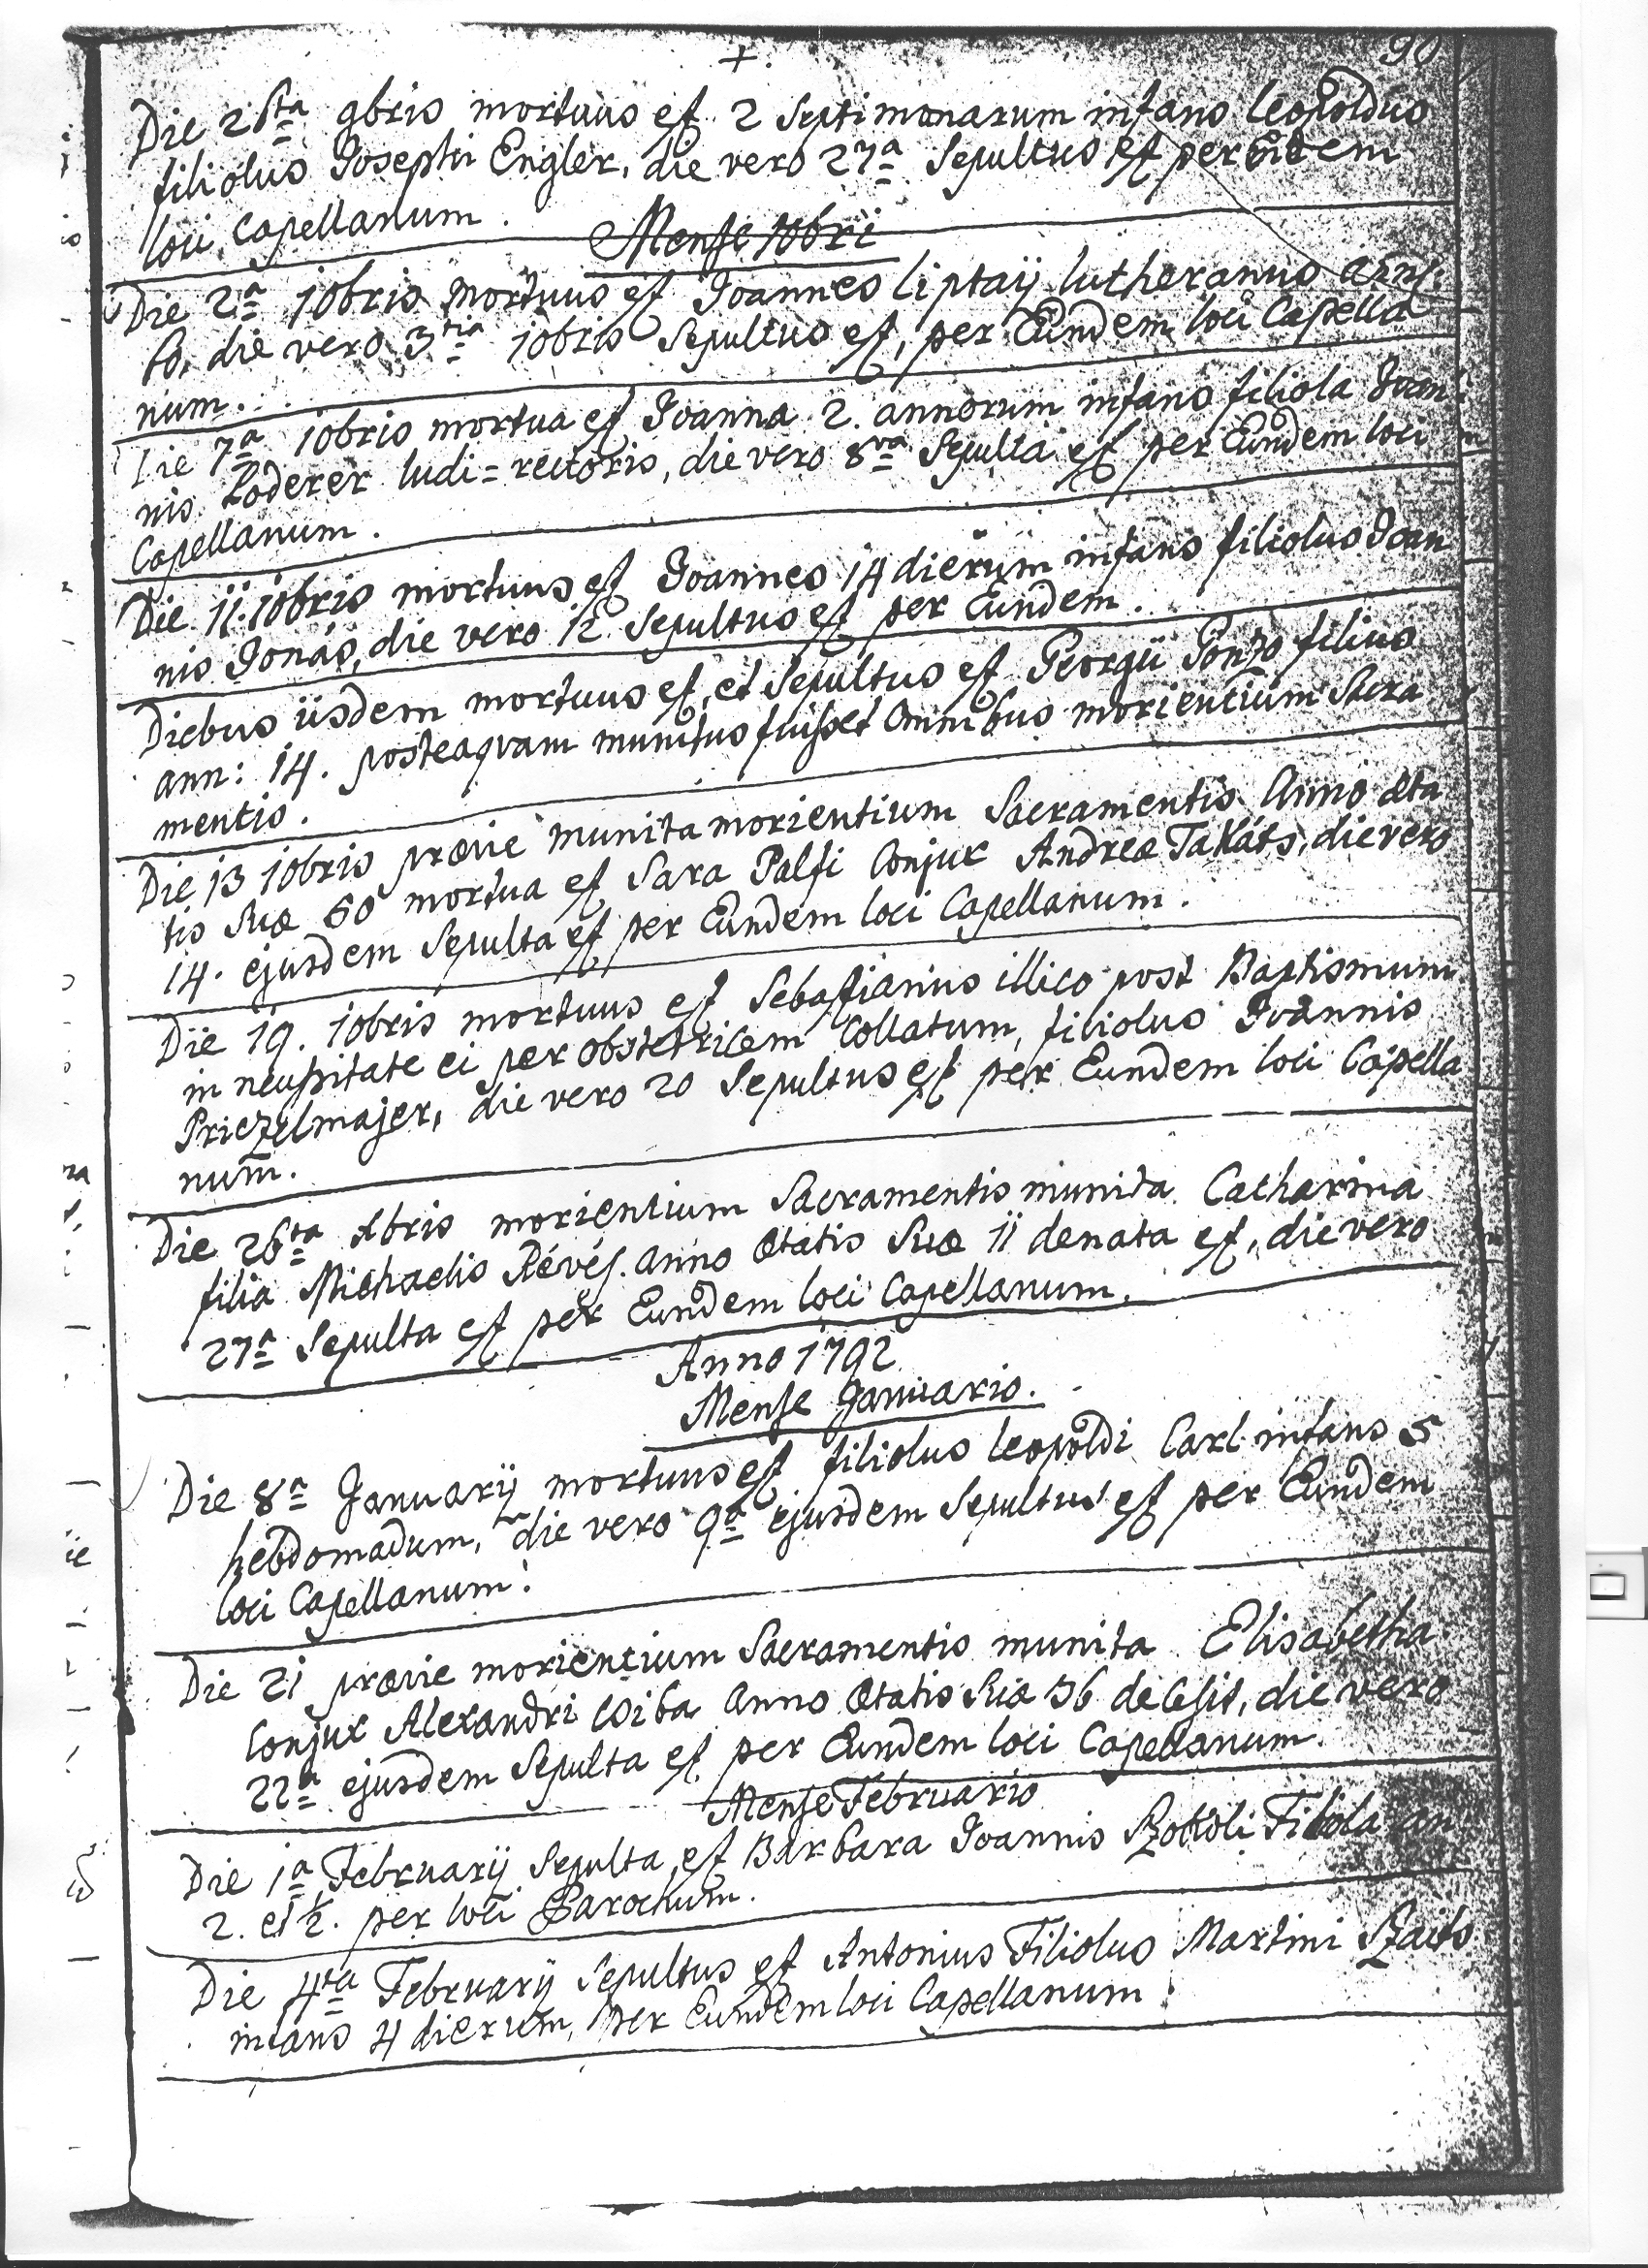 90
Die 26ta 9bris mortuus est 2 Septimanarum infans Leopoldus
filiolus Josephi Engler, die vero 27a Sepultus est per eundem
loci Capellanum.
Mense 10bri
Die 2a 10bris mortuus est Joannes Liptaij lutheranus
60, die vero 3tia 10bris Sepultus est, per Eundem loci Capella
num.
Die 7a 10bris mortua est Joanna 2. annorum infans filiola Joan
nis Poderer ludi=rectoris, die vero 8va Sepulta est per Eundem loci
Capellanum.
Die 11. 10bris mortuus est Joannes 14 dierum infans filiolus Joan
nis Jonás, die vero 12 Sepultus est per Eundem.
Diebus iisdem mortuus est, et Sepultus est Georgii Ponzo filius
ann: 14. posteaqvam munitus fuisset omnibus morientium Sacra
mentis.
Die 13 10bris prævie munita morientium Sacramentis Anno æta
tis Suæ 60 mortua est Sara Palfi Conjux Andreæ Takáts, die vero
14. ejusdem Sepulta est per Eundem loci Capellanum.
Die 19. 10bris mortuus est Sebastianus illico post Baptismum
in necessitate ei per obstetricem Collatum, filiolus Joannis
Priezelmajer, die vero 20 Sepultus est per Eundem loci Capella
num.
Die 26ta Xbris morientium Sacramentis munita Catharina
filia Michaelis Révés. Anno Ætatis Suæ 11 denata est, die vero
27a Sepulta est per Eundem loci Capellanum.
Anno 1792
Mense Januario.
Die 8a Januarij mortuus est filiolus Leopoldi Carl infans 5
hebdomadum, die vero 9a ejusdem Sepultus est per Eundem
loci Capellanum.
Die 21 prævie morientium Sacramentis munita Elisabetha
Conjux Alexandri Cziba Anno Ætatis Suæ 36 decessit, die vero
22a ejusdem Sepulta est per Eundem loci Capellanum.
Mense Februario
Die 1a Februarij Sepulta est Barbara Joannis Szokoli Filiola an
2. et 1/2. per loci Parochum.
Die 4ta Februarij Sepultus est Antonius Filiolus Martini Szaits
infans 4 dierum, per Eundem loci Capellanum.